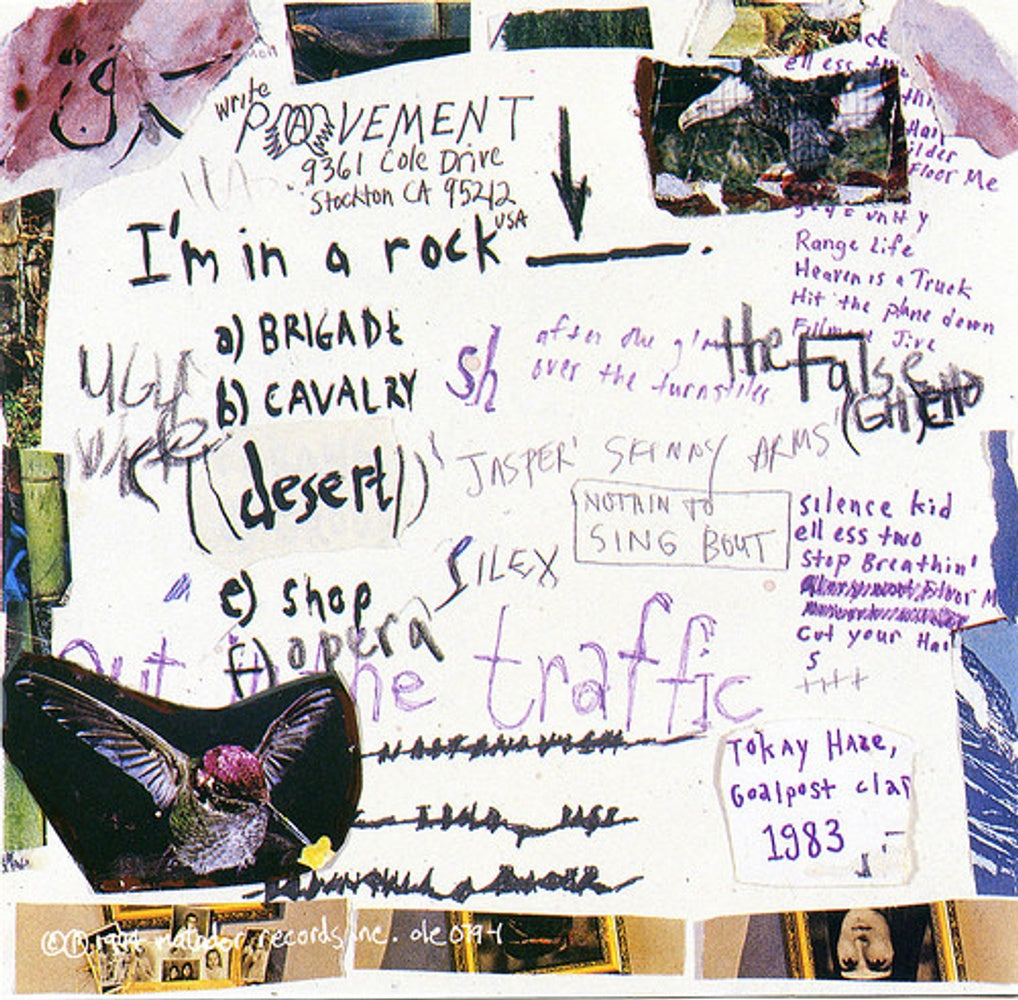 write
PAVEMENT
9361 Cole Drive
Stockton CA 95212
USA
I'm in a rock ____.
a) BRIGADE
b) CAVALRY
((desert))
e) shop
f) opera
UGH
sh
after the
over the turnstiles
the Fall se
(GHETTO
JASPER' SKINNY ARMS'
NOTHIN TO
SING BOUT
SILEX
out the traffic
ell ess two
Hair
ilder
Floor Me
unity
Range Life
Heaven is a Truck
Hit the plane down
Jive
silence kid
ell ess two
stop Breathin'
cut your Hair
s
++++
TOKAY HAZE,
Goalpost clap
1983
records, inc. ole 079-1